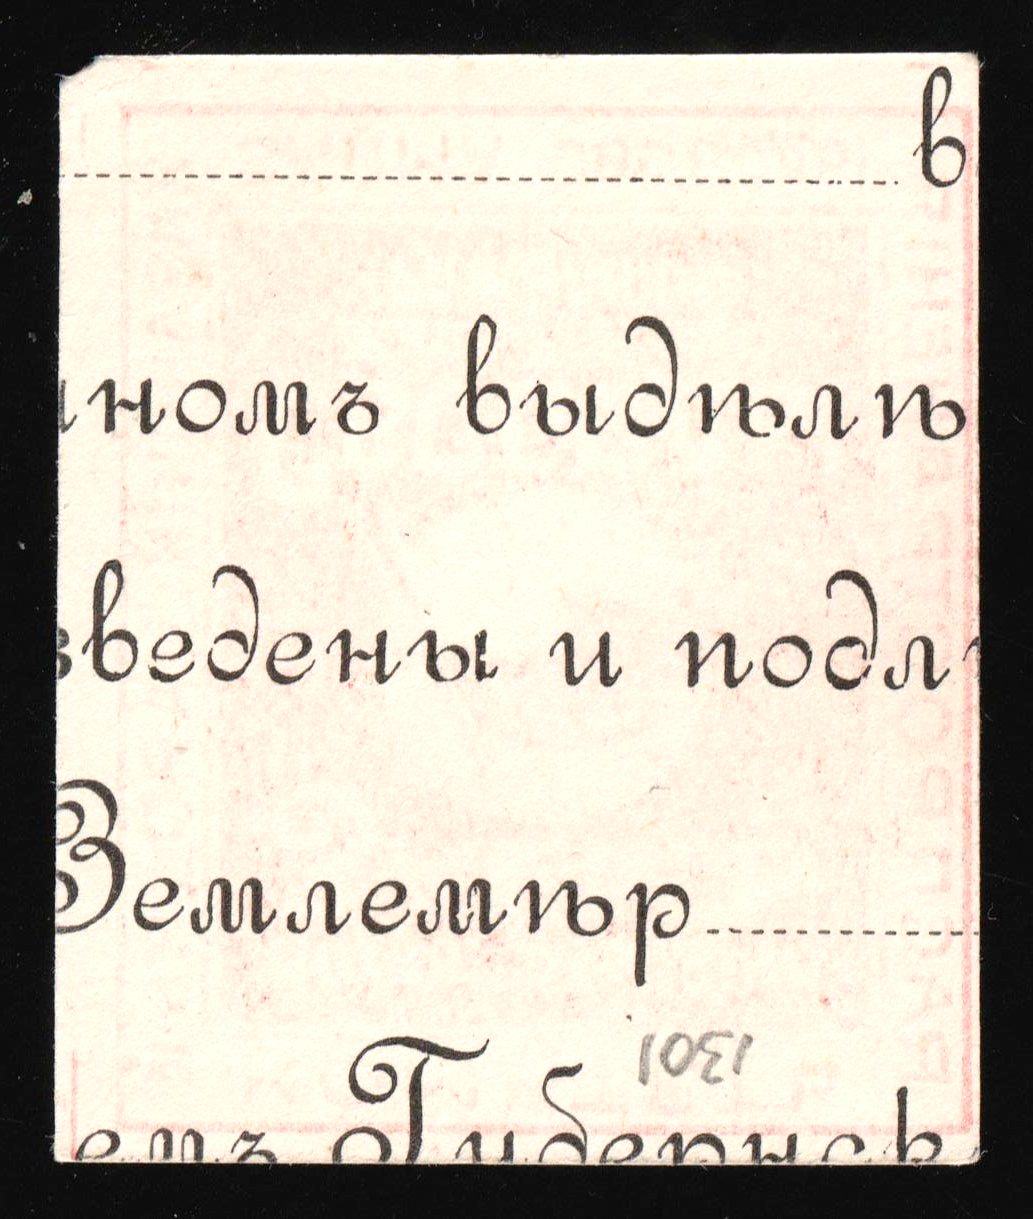 в
номъ выдѣлѣ
зведены и подл
Землемѣр
1301
емъ Губернск